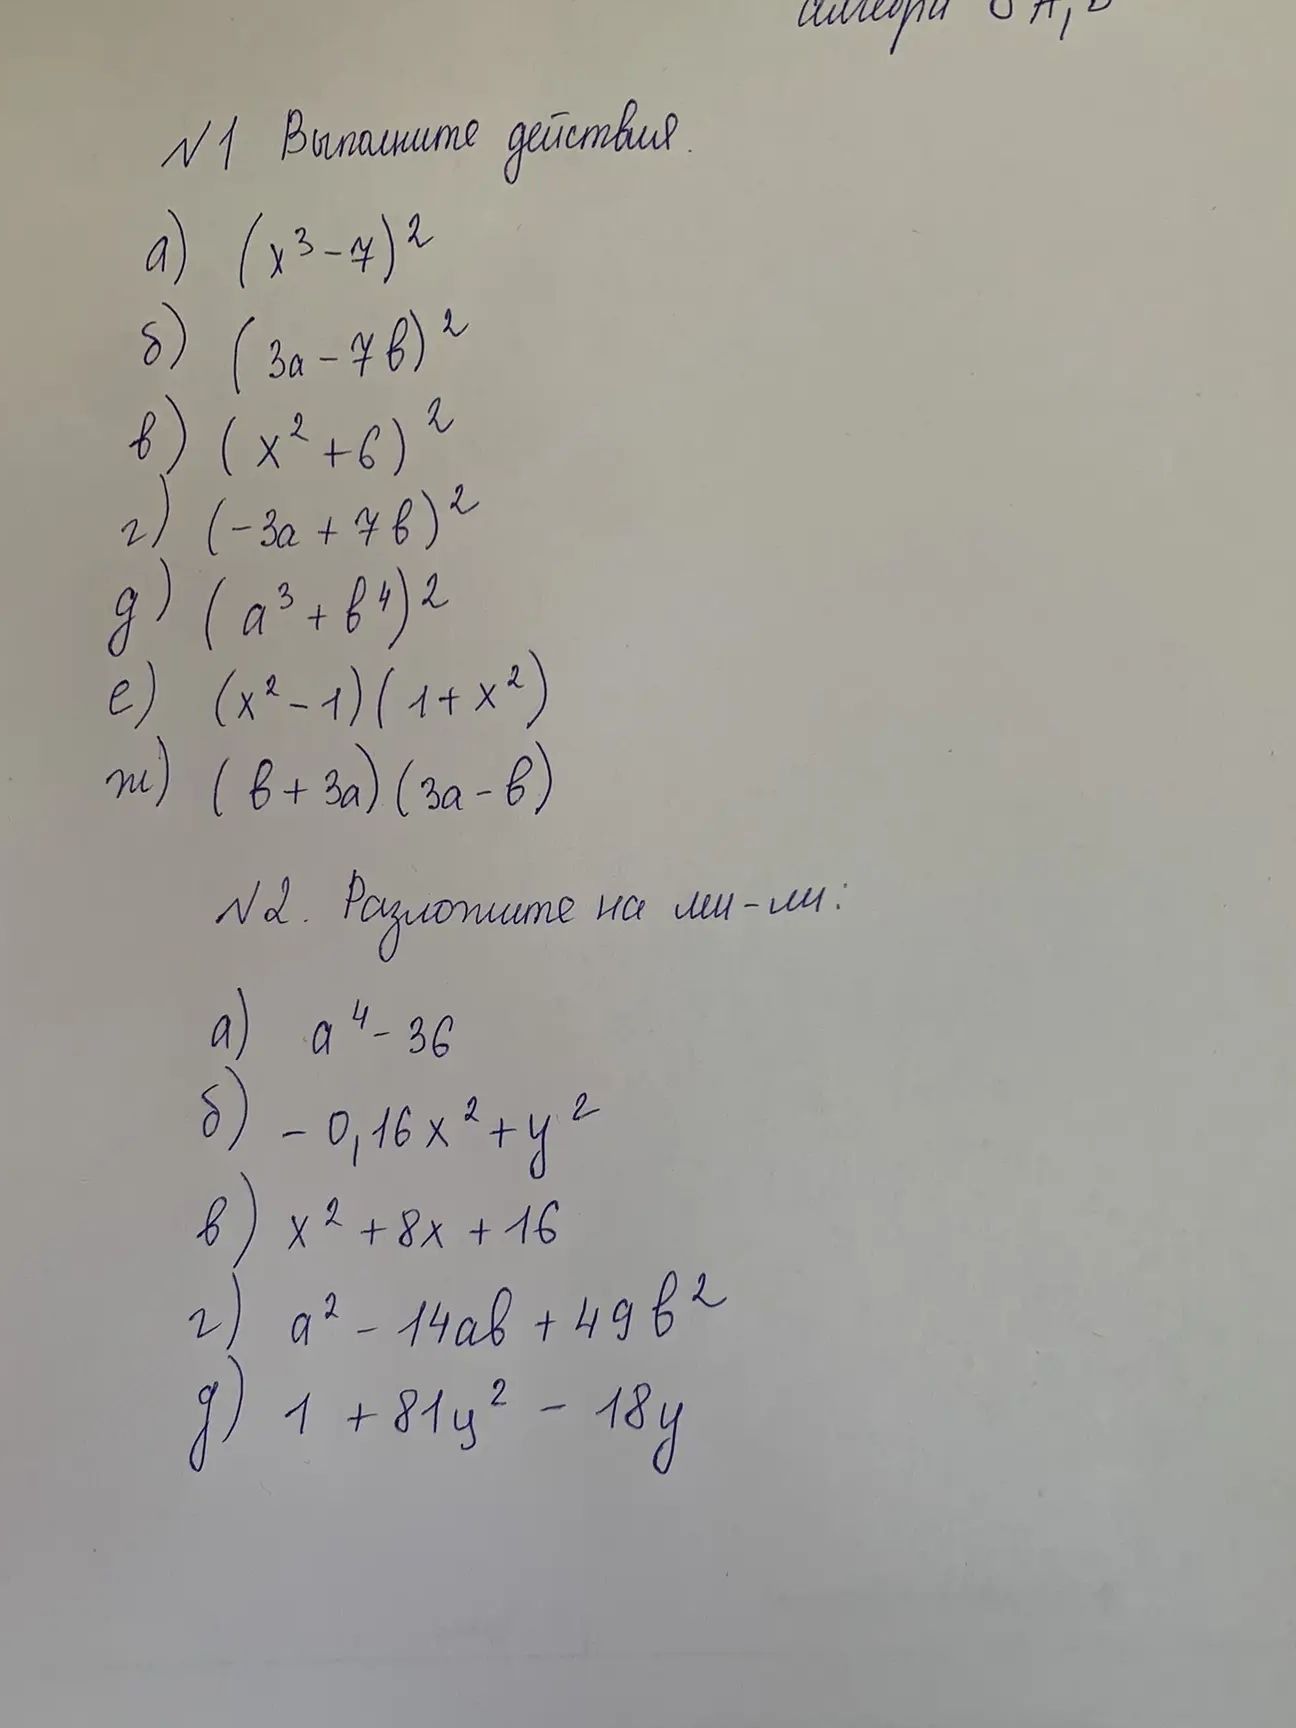 алгебра
№1 Выполните действия.
а) (x³ - 7)²
б) (3a - 7b)²
в) (x² + 6)²
г) (-3a + 7b)²
д) (a³ + b⁴)²
е) (x² - 1)(1 + x²)
ж) (b + 3a)(3a - b)
№2. Разложите на мн-ли:
а) a⁴ - 36
б) - 0,16x² + y²
в) x² + 8x + 16
г) a² - 14ab + 49b²
д) 1 + 81y² - 18y